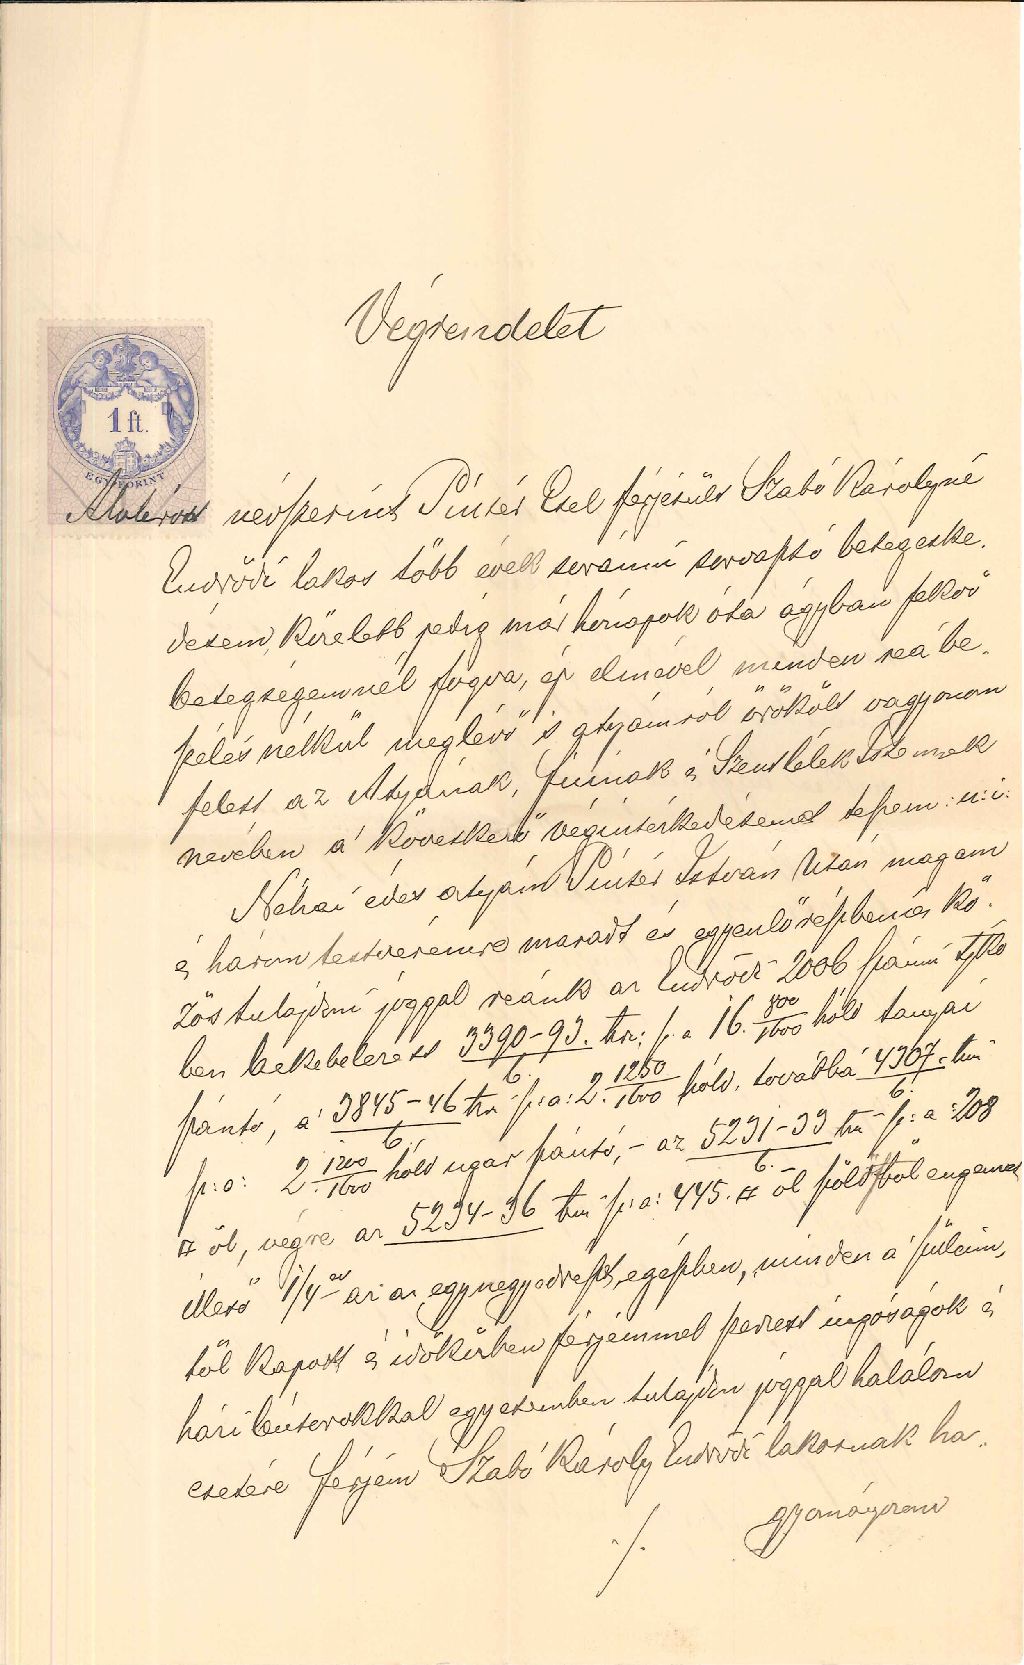 Végrendelet
1 ft.
EGY FORINT
Alulírott névszerint Pintér Etel férjezült Szabó Károlyné
Endrődi lakos több évek seránni sorvasztó betegeske-
désem, közelebb pedig már hónapok óta ágyban fekvő
betegségemnél fogva, ép elmével minden reá be-
szélés nélkül meglévő s atyámról örökölt vagyonom
felett az Atyának, fiúnak és Szentlélek Istennek
nevében a következő végintézkedésemet teszem u: i:
Néhai édes atyám Pintér István után magam
és három testvéremre maradt és egyenlő részben és kö-
zös tulajdoni joggal reánk az Endrődi 2006 számú tjkv
ben bekebelezett 3390-93. hrsz: sz. a 16. 800/1600 hold tanyai
szántó, a 3845-46/6. hrsz sz: a: 2. 1250/1600 hold, továbbá 4307/6. hrsz
sz: a: 2. 1200/1600 hold ugar szántó, – az 5231-33/6. hrsz sz: a: 208
□ öl, végre az 5234-36 hrsz sz: a: 445. □ öl földből engemet
illető 1/4 ed az az egynegyedrészt, egészben, minden a szüleim-
től kapott és időközben férjemmel szerzett ingóságok és
házi bútorokkal egyetemben tulajdon joggal halálom
esetére férjem Szabó Károly Endrődi lakosnak ha-
gyományozom
./.